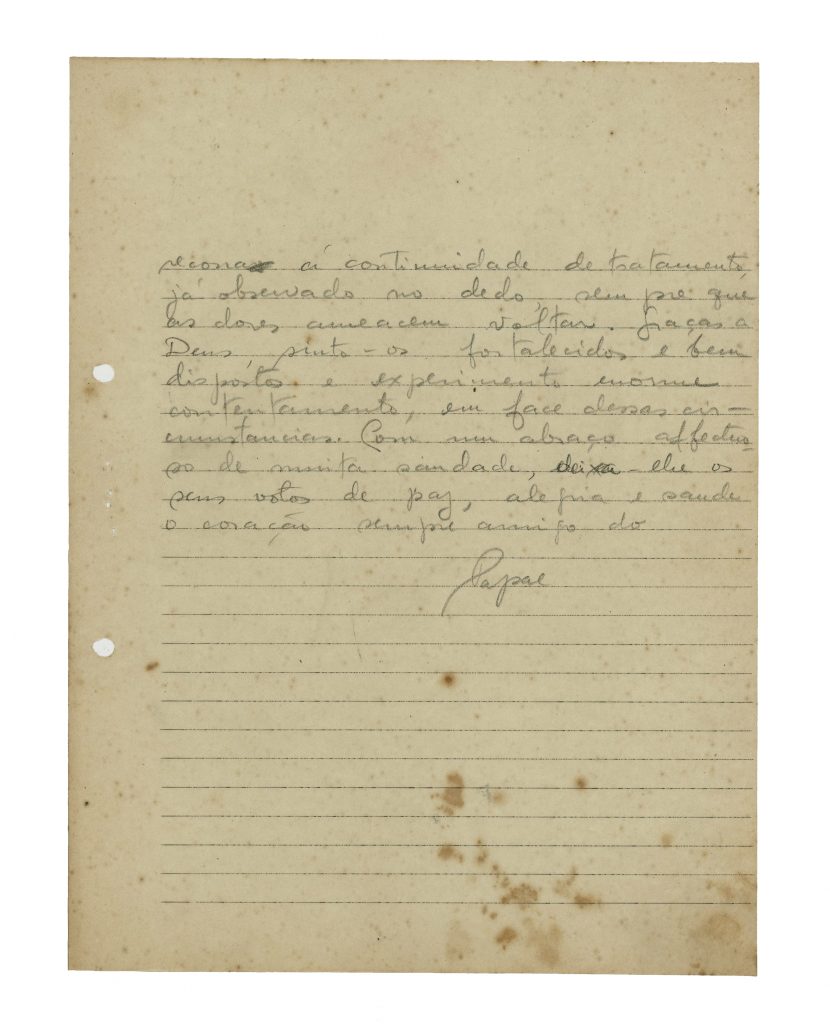 recorra á continuidade de tratamento,
já observado no dedo, sempre que
as dores ameacem voltar. Graças a
Deus, sinto-os fortalecidos e bem
dispostos e experimento enorme
contentamento, em face dessas cir-
cunstancias. Com um abraço affectuo-
so de muita saudade, deixa-lhe os
seus votos de paz, alegria e saude
o coração sempre amigo do
Papae